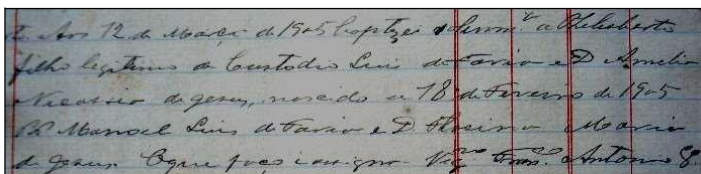 Aos 12 de Março de 1905 baptizei solemn.e a Philisberto
filho legitimo de Custodio Luis de Faria e D Amelia
de Jesus, nascido a 18 de Fevereiro de 1905
PP. Manoel Luis de Faria e D Maria
de Jesus. E que faço e assigno Vigro Antonio